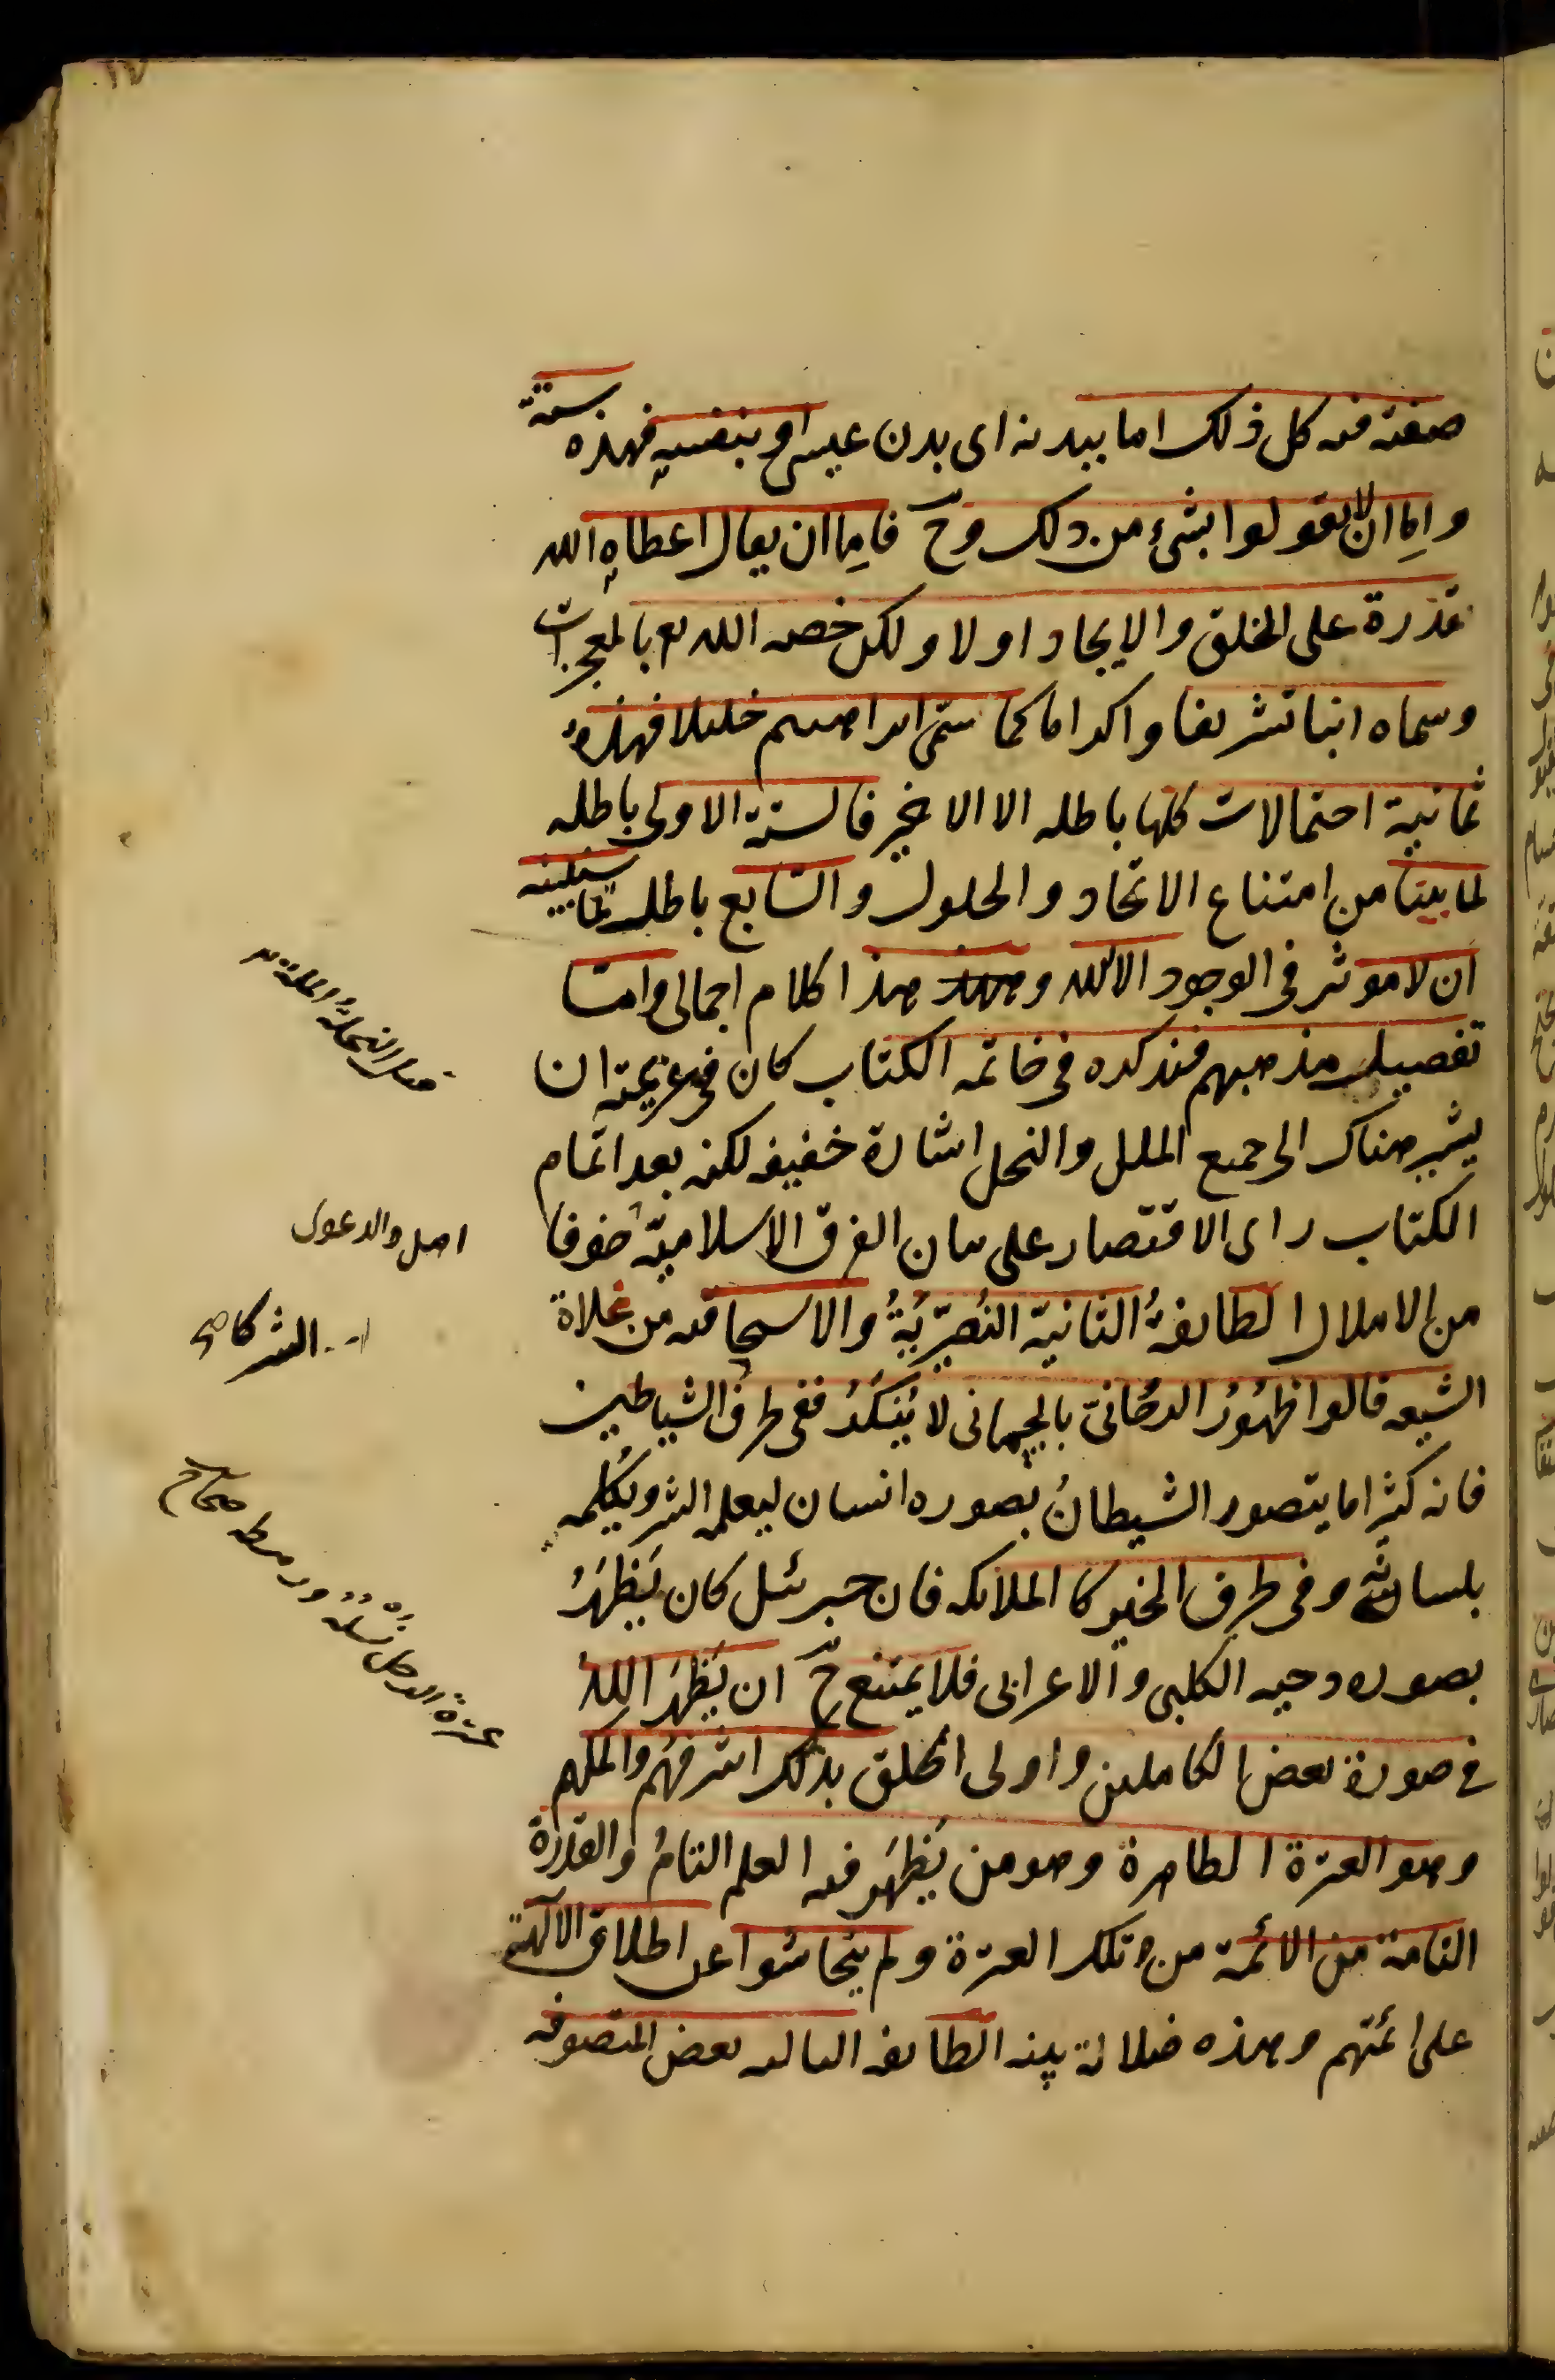 صفته فيه كل ذلك اما ببدنه اى بدن عيسى او بنفسه فهذه ستة
واما ان لا يقولوا بشىء من ذلك وح فاما ان يقال اعطاه الله
قدرة على الخلق والايجاد اولا ولكن خصه الله تع بالمعجزات
وسماه ابنا تشريفا واكراما كما سمى ابراهيم خليلا فهذه
ثمانية احتمالات كلها باطله الا الاخير فالستة الاولى باطله
لما بينا من امتناع الاتحاد والحلول والسابع باطل لما سنبينه
ان لا موثر فى الوجود الا الله وهذا كلام اجمالى واما
تفصيل مذهبهم فنذكره فى خاتمه الكتاب كان فى عزيمته ان
يشير هناك الى جميع الملل والنحل اشارة خفيفه لكنه بعد اتمام
الكتاب راى الاقتصار على بيان الفرق الاسلامية خوفا
من الاملال الطايفةُ الثانية النُصَيْريّةُ والاسحاقيه من غلاة
الشيعه قالوا ظهُورُ الروحانىّ بالجسمانى لا يُنْكَرُ ففى طرف الشياطين
فانه كثيرا ما يتصور الشيطانُ بصوره انسان ليعلمه الشر ويكلمه
بلسانه وفى طرف الخير كالملائكه فان جبرئيل كان يَظهَرُ
بصوره دحيه الكلبى والاعرابى فلا يمتنع ح ان يَظهَرَ اللهُ
فى صورة بعض الكاملين واولى الخلق بذلك اشرفهم واكملهم
وهو العترة الطاهرة وهو من يَظهَر فيه العلم التامُ والقدرة
التامة من الائمة من تلك العترة ولم يتحاشوا عن اطلاق الآلهة
على ائمتهم وهذه ضلالة بينه الطايفه الثالثه بعض المتصوفه
النحلة الملة
عترة الرجل نَسْلُهُ ورهطه صحاح